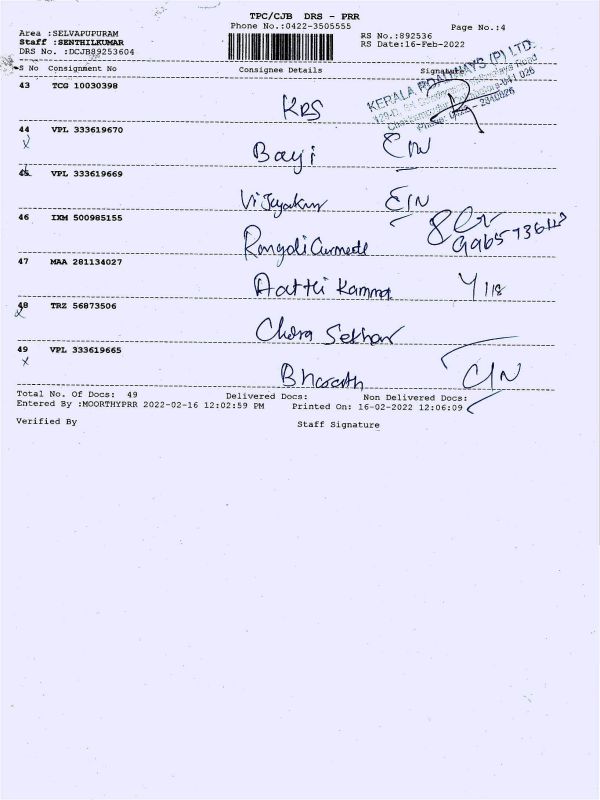 TPC/CJB DRS - PRR
Phone No.:0422-3505555
Page No.:4
Area :SELVAPUPURAM
Staff :SENTHILKUMAR
DRS No. :DCJB89253604
RS No.:892536
RS Date:16-Feb-2022
S No Consignment No Consignee Details Signature
43 TCG 10030398
KRS
KERALA ROADWAYS (P) LTD.
44 VPL 333619670
x Bayi
45 VPL 333619669
Vijayakar
46 IXM 500985155
47 MAA 281134027
Aatthi Kamma
48 TRZ 56873506
x
49 VPL 333619665
x Bharath
Total No. Of Docs: 49 Delivered Docs: Non Delivered Docs:
Entered By :MOORTHYPRR 2022-02-16 12:02:59 PM Printed On: 16-02-2022 12:06:09
Verified By Staff Signature